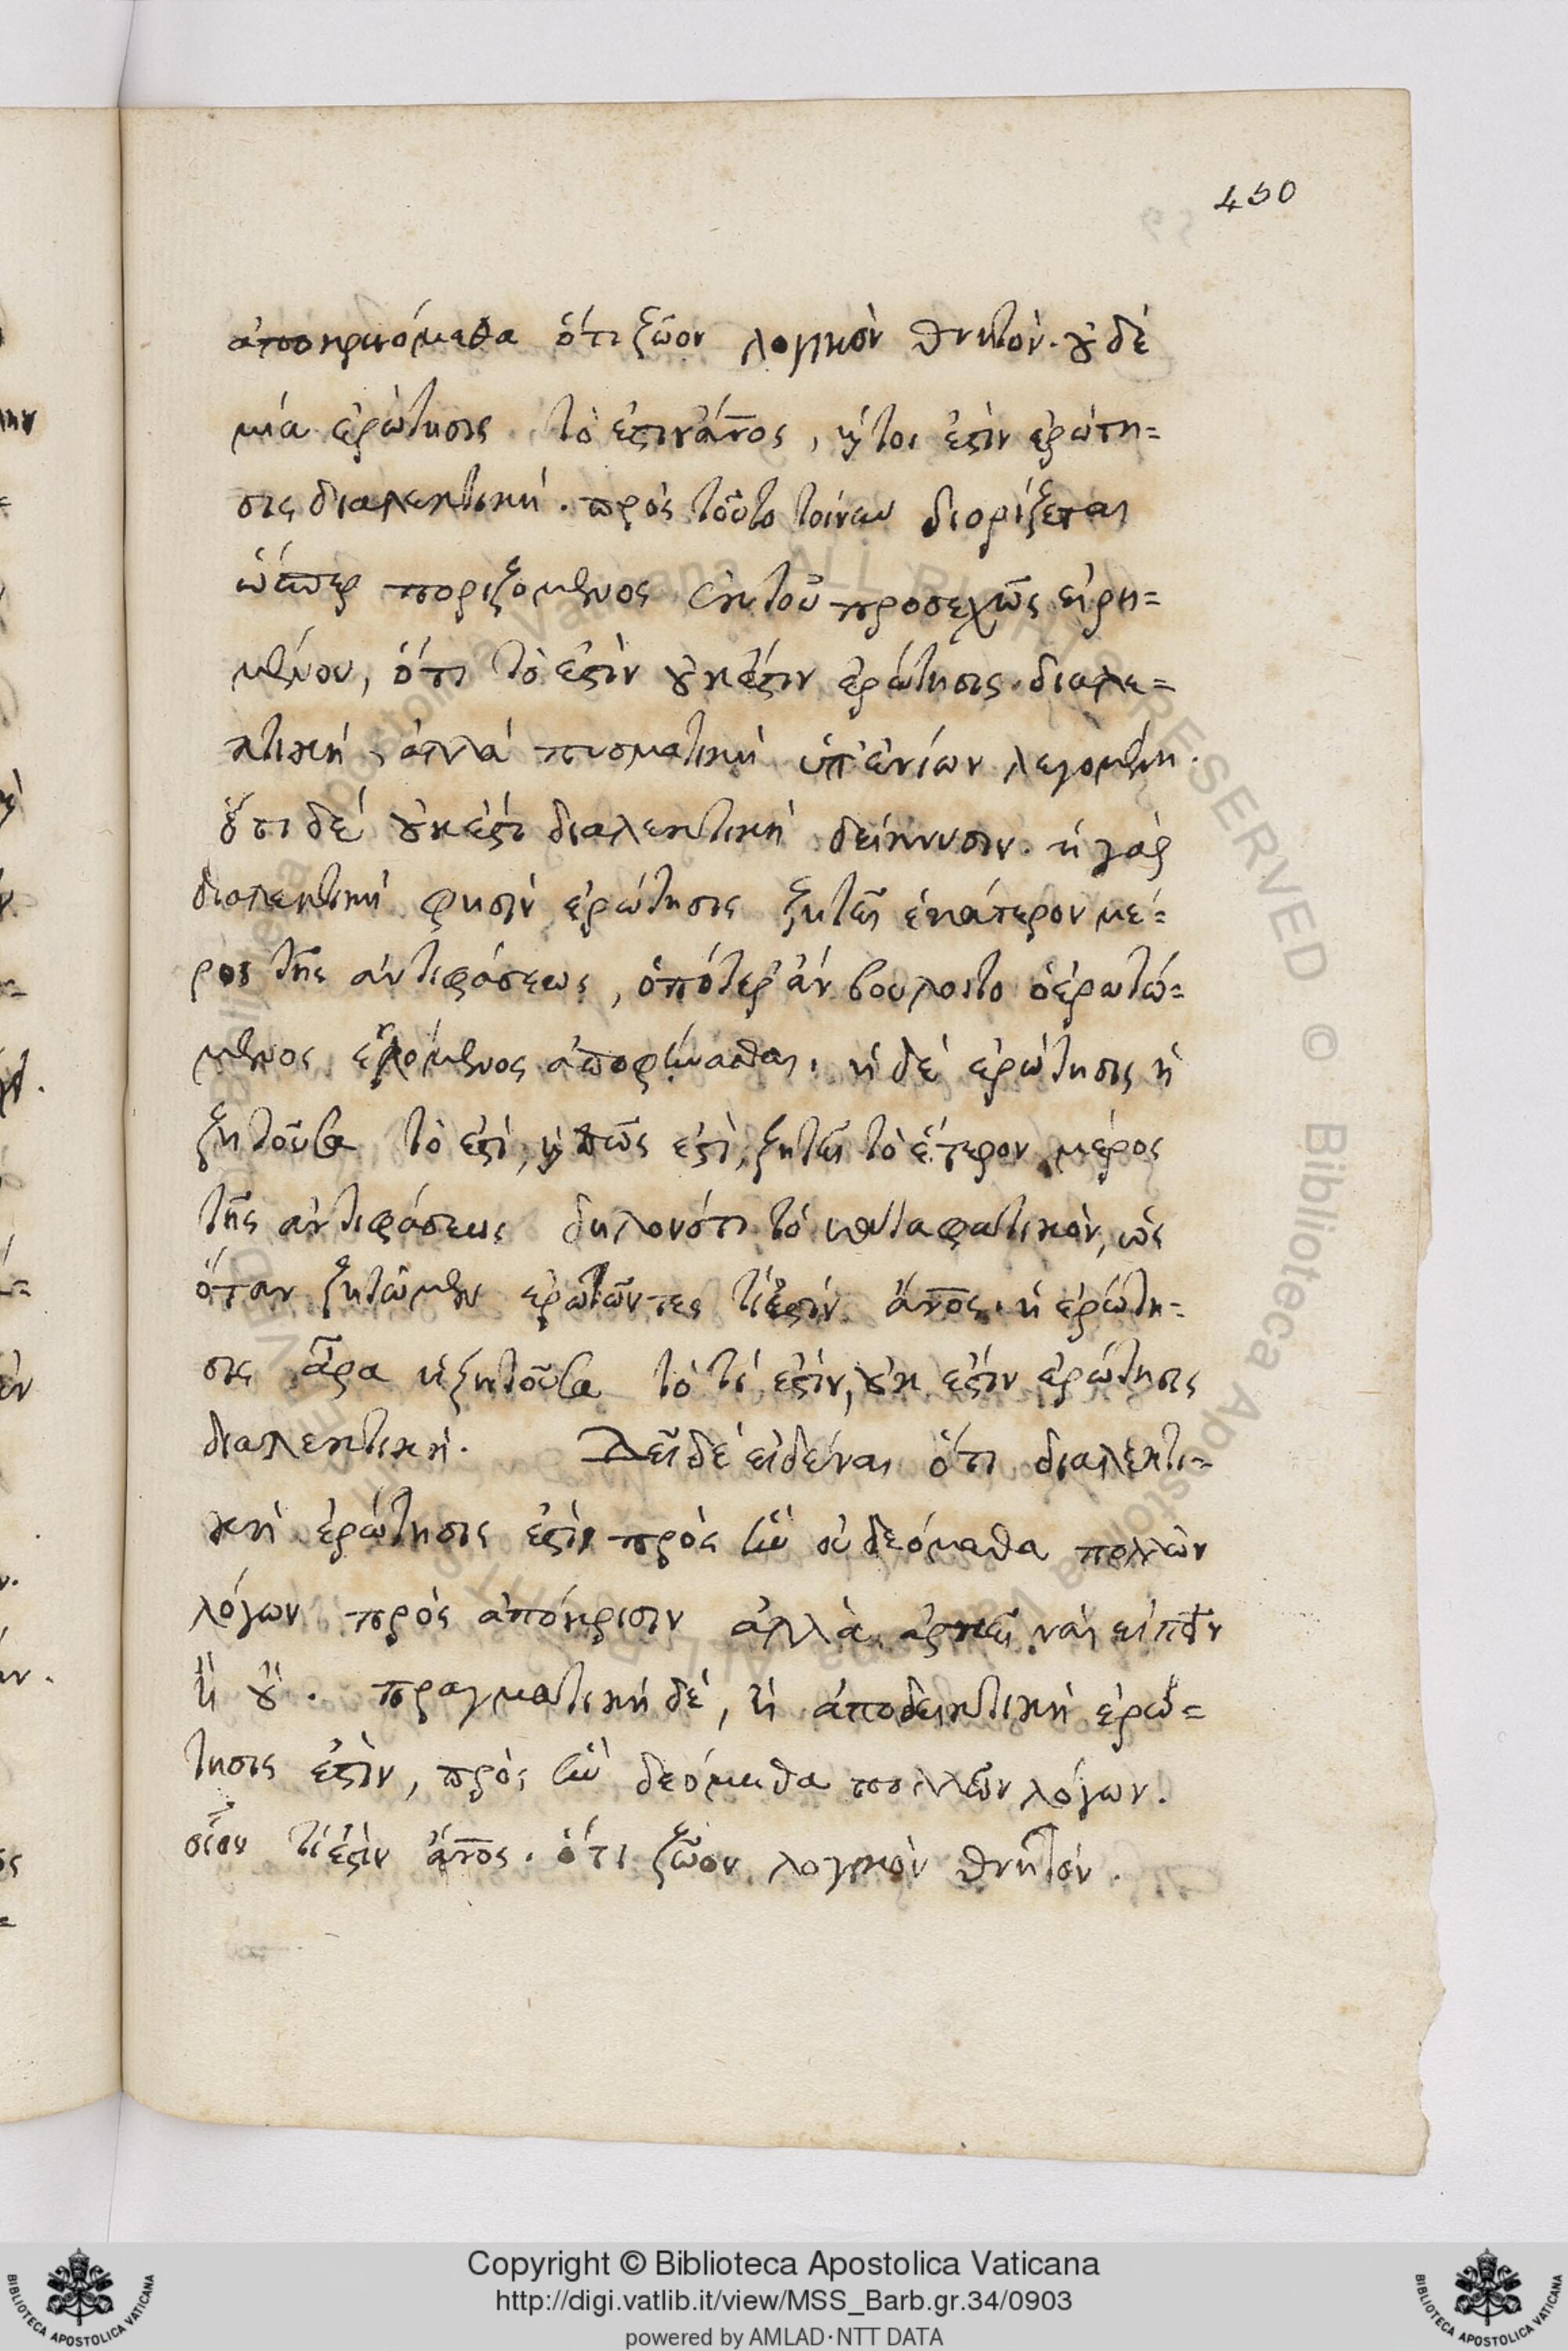 450
ἀποκρινόμεθα ὅτι ζῶον λογικὸν θνητόν. οὐδὲ
μία ἐρώτησις τὸ ἐστὶν ἄνος, ἤτοι ἐστὶν ἐρώτη=
σις διαλεκτικὴ. πρὸς τοῦτο τοίνυν διορίζεται
ὥσπερ ποριζόμενος ἐκ τοῦ προσεχῶς εἰρη=
μένου, ὅτι τὸ ἐστὶν οὐκ ἔστιν ἐρώτησις διαλε=
κτικὴ, ἀλλὰ πυσματικὴ ὑπ' ἐνίων λεγομένη.
ὅτι δὲ οὐκ ἐστὶ διαλεκτικὴ δείκνυσιν. ἡ γὰρ
διαλεκτικὴ φησὶν ἐρώτησις ζητεῖ ἑκάτερον μέ=
ρος τῆς ἀντιφάσεως, ὁπότερ' ἂν βούλοιτο ὁ ἐρωτώ=
μενος ἑλόμενος ἀποφήνασθαι. ἡ δὲ ἐρώτησις ἡ
ζητοῦσα τὸ ἐστὶ, ἢ πῶς ἐστὶ, ζητεῖ τὸ ἕτερον μέρος
τῆς ἀντιφάσεως δηλονότι τὸ καταφατικὸν, ὡς
ὅταν ζητῶμεν ἐρωτῶντες τί ἐστὶν ἄνος. ἡ ἐρώτη=
σις ἄρα ἡ ζητοῦσα τὸ τί ἐστὶν, οὐκ ἐστὶν ἐρώτησις
διαλεκτικὴ. Δεῖ δὲ εἰδέναι ὅτι διαλεκτι=
κὴ ἐρώτησις ἐστὶ πρὸς ἣν οὐ δεόμεθα πολλῶν
λόγων πρὸς ἀπόκρισιν ἀλλὰ ἀρκεῖ ναὶ εἰπεῖν
ἢ οὔ. πραγματικὴ δὲ, ἢ ἀποδεικτικὴ ἐρώ=
τησις ἐστὶν, πρὸς ἣν δεόμεθα πολλῶν λόγων.
οἷον τί ἐστὶν ἄνος. ὅτι ζῶον λογικὸν θνητόν.
Copyright © Biblioteca Apostolica Vaticana
http://digi.vatlib.it/view/MSS_Barb.gr.34/0903
powered by AMLAD·NTT DATA